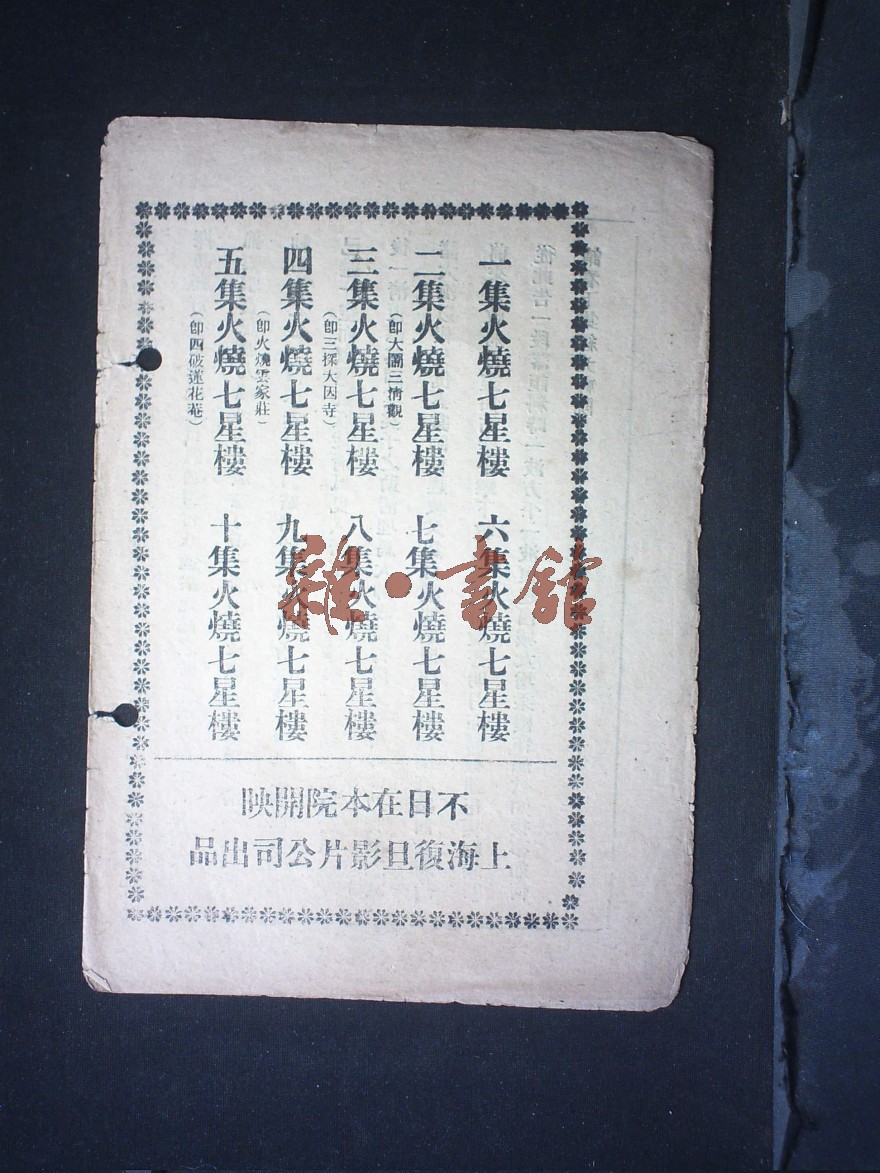 一集火燒七星樓
二集火燒七星樓
（卽大鬧三淸觀）
三集火燒七星樓
（卽三探大因寺）
四集火燒七星樓
（卽火燒雲家莊）
五集火燒七星樓
（卽四破蓮花菴）
六集火燒七星樓
七集火燒七星樓
八集火燒七星樓
九集火燒七星樓
十集火燒七星樓
不日在本院開映
上海復旦影片公司出品
雜·書館